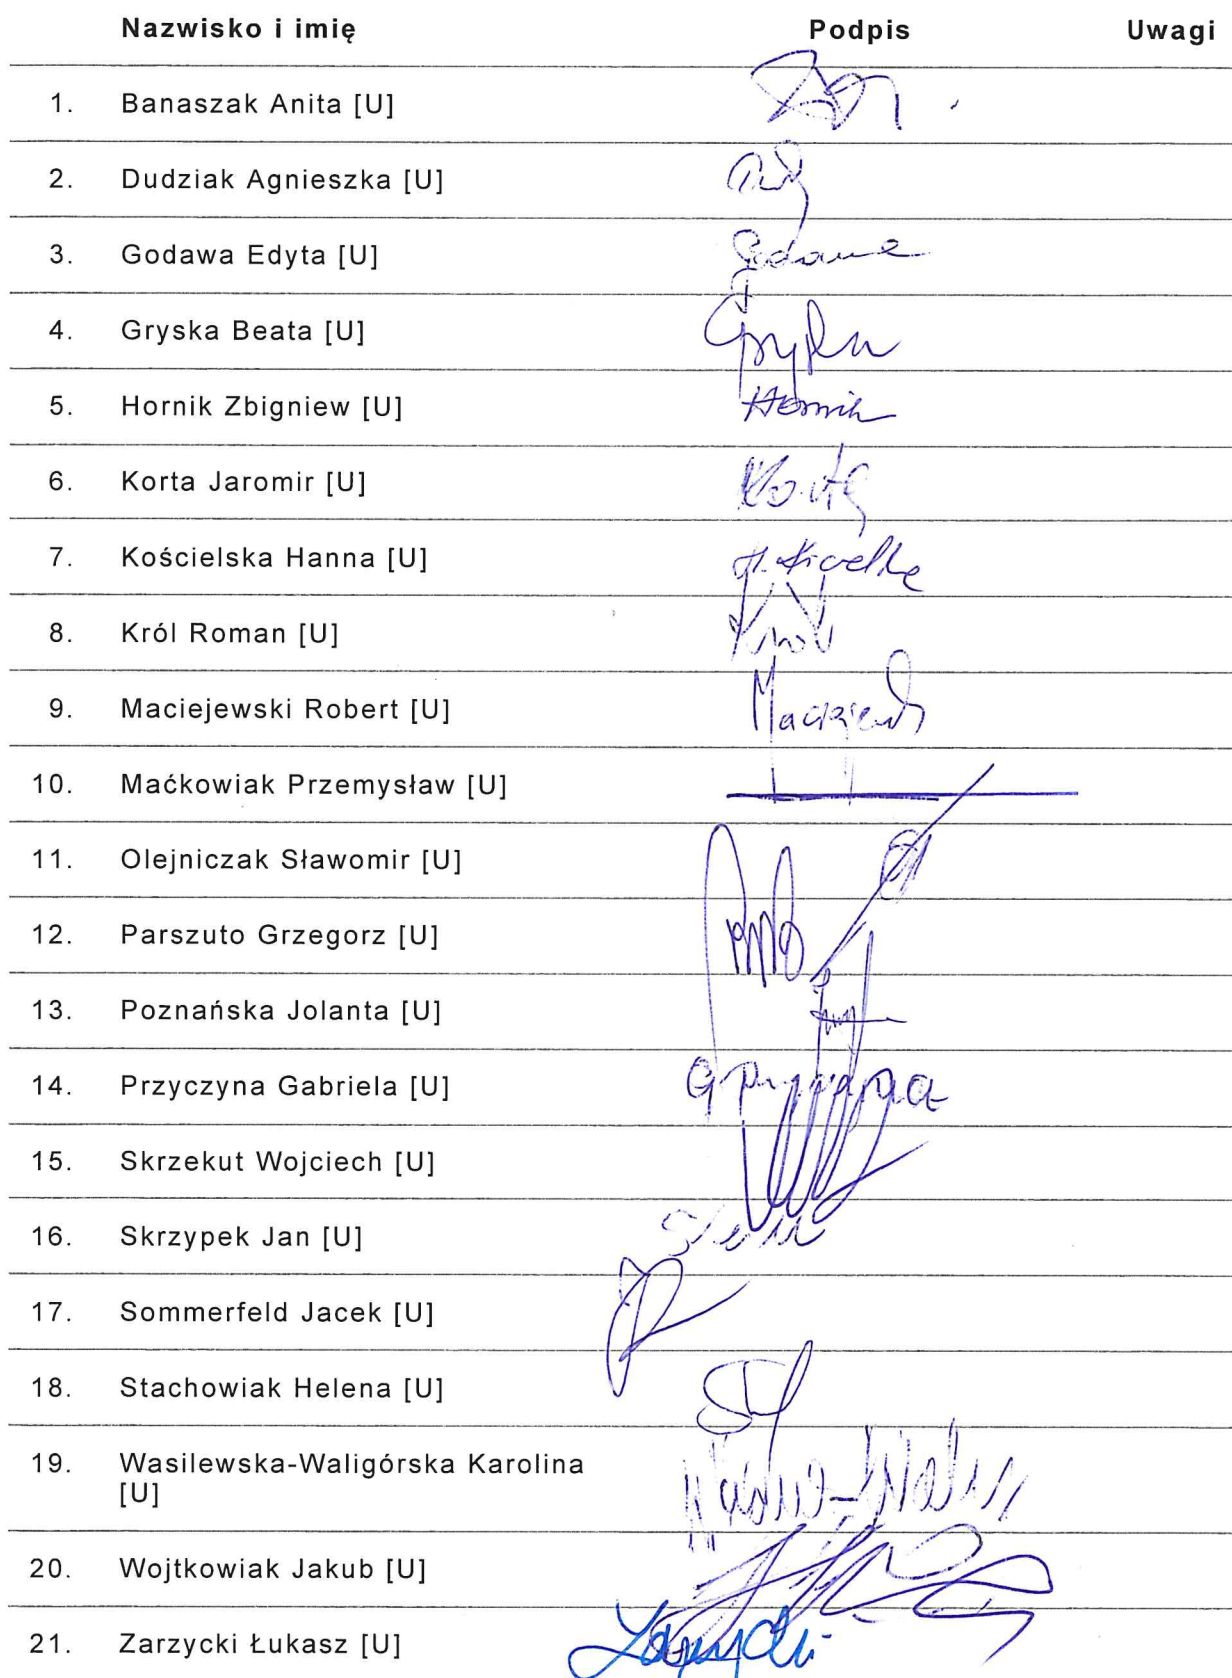 Nazwisko i imię Podpis Uwagi
1. Banaszak Anita [U]
2. Dudziak Agnieszka [U]
3. Godawa Edyta [U] Godawa
4. Gryska Beata [U]
5. Hornik Zbigniew [U] Hornik
6. Korta Jaromir [U] Korta
7. Kościelska Hanna [U] H.
8. Król Roman [U] Król
9. Maciejewski Robert [U]
10. Maćkowiak Przemysław [U]
11. Olejniczak Sławomir [U]
12. Parszuto Grzegorz [U]
13. Poznańska Jolanta [U]
14. Przyczyna Gabriela [U] G Przyczyna
15. Skrzekut Wojciech [U]
16. Skrzypek Jan [U]
17. Sommerfeld Jacek [U]
18. Stachowiak Helena [U]
19. Wasilewska-Waligórska Karolina
[U]
20. Wojtkowiak Jakub [U]
21. Zarzycki Łukasz [U] Zarzycki